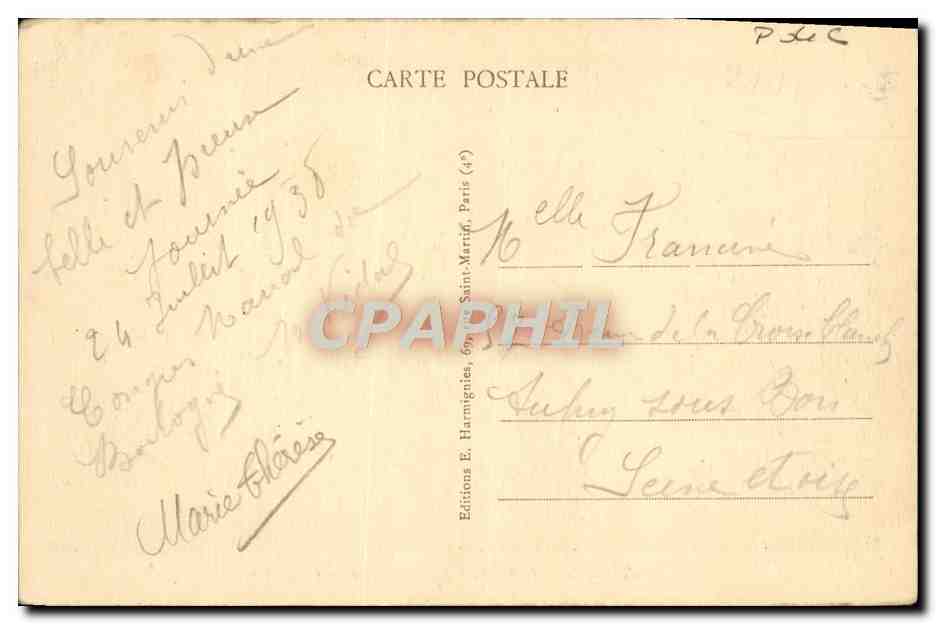 P de C
CARTE POSTALE
Souvenir d'une
belle et pieuse
journée
24 Juillet 1938
Congrès Marial de
Boulogne
Marie Thérèse
Editions E. Harmignies, 69, rue Saint-Martin, Paris (4e)
CPAPHIL
Melle Francine
rue de la Croix Blanche
sous Bois
Seine et Oise